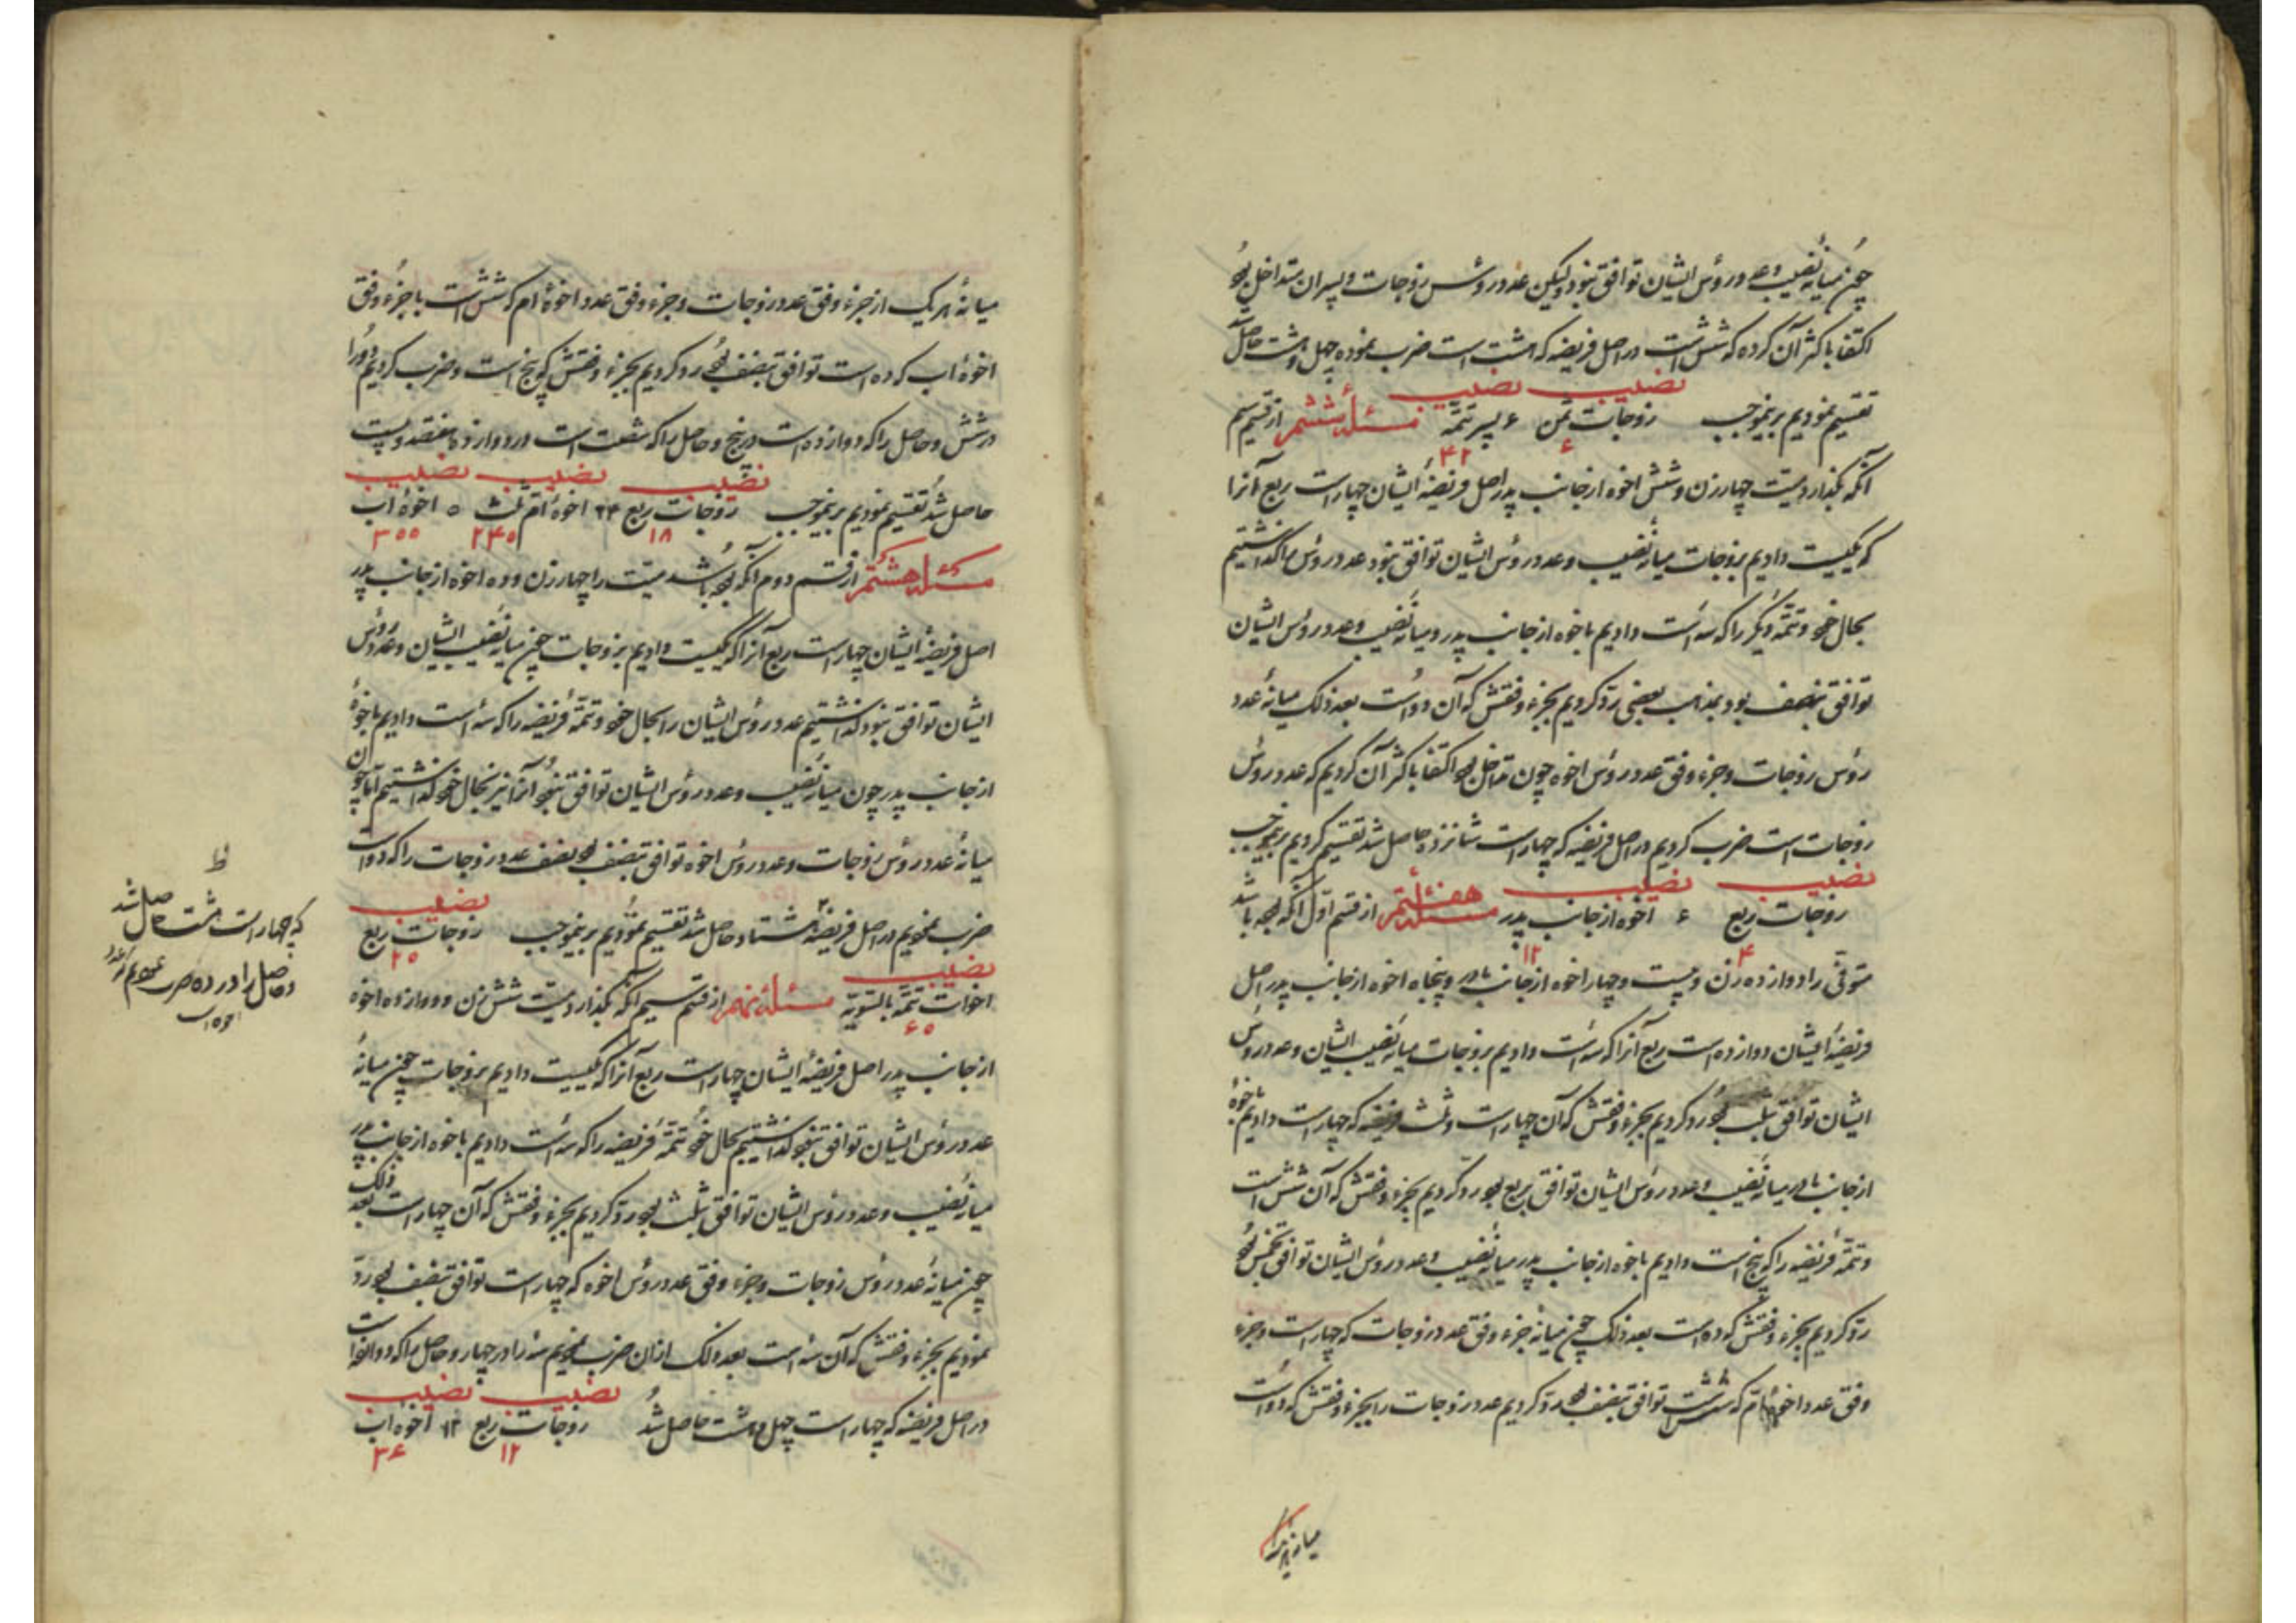 چون میانهٔ نصیب و عدد رؤس ایشان توافق نبود و لیکن عدد رؤس زوجات و پسران متداخل بود
اکتفا باکثر آن کرده که شش است در اصل فریضه که هشت است ضرب نموده چهل و هشت حاصل شد
نصیب نصیب
تقسیم نمودیم برینموجب زوجات ثمن ۶ پسر تتمّه مسئله ششم از قسم سیم
۶ ۴۲
آنکه بگذارد میّت چهار زن و شش اخوه از جانب پدر اصل فریضهٔ ایشان چهار است ربع آنرا
که یکیست دادیم بزوجات میانهٔ نصیب و عدد رؤس ایشان توافق نبود عدد رؤس را گذاشتیم
بحال خود و تتمّه دیگر را که سه است دادیم باخوه از جانب پدر و میانهٔ نصیب و عدد رؤس ایشان
توافق بنصف بود بمذهب بعضی ردّ کردیم بجزء وفقش که آن دو است بعد ذلک میانهٔ عدد
رؤس زوجات و جزء وفق عدد رؤس اخوه چون تداخل بود اکتفا باکثر آن کردیم که عدد رؤس
زوجات است ضرب کردیم در اصل فریضه که چهار است شانزده حاصل شد تقسیم کردیم برینموجب
نصیب نصیب
زوجات ربع ۶ اخوه از جانب پدر مسئله هفتم از قسم اوّل آنکه بوده باشد
۴ ۱۲
متوفّی را دوازده زن و بیست و چهار اخوه از جانب مادر و پنجاه اخوه از جانب پدر اصل
فریضهٔ ایشان دوازده است ربع آنرا که سه است دادیم بزوجات میانهٔ نصیب ایشان و عدد رؤس
ایشان توافق بثلث بود ردّ کردیم بجزء وفقش که آن چهار است و ثلث فریضه که چهار است دادیم باخوهٔ
از جانب مادر میانهٔ نصیب و عدد رؤس ایشان توافق بربع بود ردّ کردیم بجزء وفقش که آن شش است
و تتمّه فریضه را که پنج است دادیم باخوه از جانب پدر میانهٔ نصیب و عدد رؤس ایشان توافق بخمس بود
ردّ کردیم بجزء وفقش که ده است بعد ذلک چون میانهٔ جزء وفق عدد زوجات که چهار است و جزء
وفق عدد اخوهٔ امّ که شش است توافق بنصف بود ردّ کردیم عدد زوجات را بجزء وفقش که دو است
میانهٔ هر یک
میانهٔ هر یک از جزء وفق عدد زوجات و جزء وفق عدد اخوهٔ ام که شش است با جزء وفق
اخوهٔ اب که ده است توافق بنصف بود ردّ کردیم بجزء وفقش که پنج است و ضرب کردیم دو را
در شش و حاصل را که دوازده است در پنج و حاصل را که شصت است در دوازده هفتصد و بیست
نصیب نصیب نصیب
حاصل شد تقسیم نمودیم برینموجب زوجات ربع ۲۴ اخوهٔ امّ ثلث ۵۰ اخوهٔ اب
۱۸۰ ۲۴۰ ۳۰۰
مسئله هشتم از قسم دوم آنکه بوده باشد میّت را چهار زن و ده اخوه از جانب پدر
اصل فریضهٔ ایشان چهار است ربع آنرا که یکیست دادیم بزوجات چون میانهٔ نصیب ایشان و عدد رؤس
ایشان توافق نبود گذاشتیم عدد رؤس ایشان را بحال خود و تتمّهٔ فریضه را که سه است دادیم باخوهٔ
از جانب پدر چون میانهٔ نصیب و عدد رؤس ایشان توافق نبود آنرا نیز بحال خود گذاشتیم امّا چون
میانهٔ عدد رؤس زوجات و عدد رؤس اخوه توافق بنصف بود نصف عدد زوجات را که دو است
نصیب
ضرب نمودیم در اصل فریضه هشتاد حاصل شد تقسیم نمودیم برینموجب زوجات ربع
۲۰
نصیب
اخوات تتمّه بالسّویّه مسئله نهم از قسم سیم آنکه بگذارد میّت شش زن و دوازده اخوه
۶۰
از جانب پدر اصل فریضهٔ ایشان چهار است ربع آنرا که یکیست دادیم بزوجات چون میانهٔ
عدد رؤس ایشان توافق نبود گذاشتیم بحال خود تتمّهٔ فریضه را که سه است دادیم باخوه از جانب پدر
میانهٔ نصیب و عدد رؤس ایشان توافق بثلث بود ردّ کردیم بجزء وفقش که آن چهار است بعد ذلک
چون میانهٔ عدد رؤس زوجات و جزء وفق عدد رؤس اخوه که چهار است توافق بنصف بود ردّ
نمودیم بجزء وفقش که آن سه است بعد ذلک از آن ضرب نمودیم سه را در چهار و حاصل را که دوازده است
نصیب نصیب
در اصل فریضه که چهار است چهل و هشت حاصل شد زوجات ربع ۱۲ اخوهٔ اب
۱۲ ۳۶
ظ
که چهار است هشت حاصل شد
و حاصل را در ده ضرب نمودیم که عدد
اخوه است